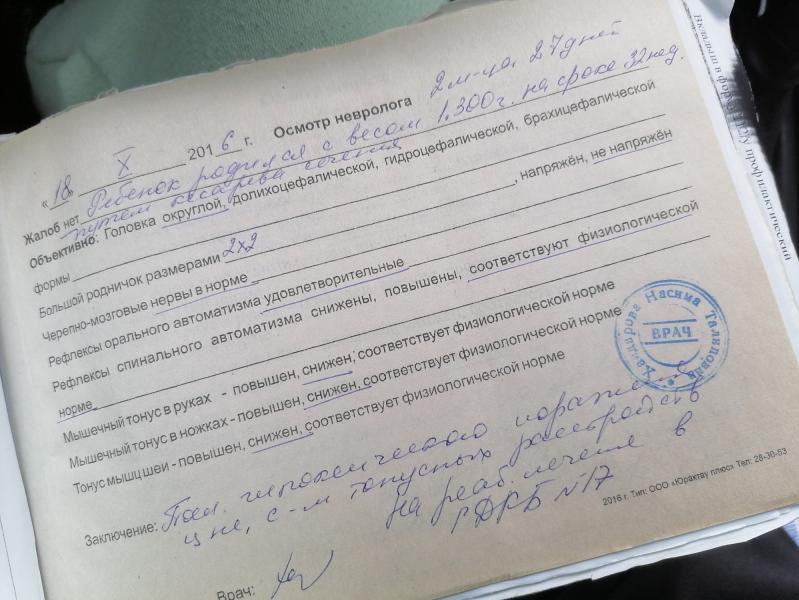 2 м-ца 27 дней
«18» X 2016 г. Осмотр невролога
Ребенок родился с весом 1.300 г. на сроке 32 нед.
Жалоб нет
путем кесарева сечения
Объективно: Головка округлой, долихоцефалической, гидроцефалической, брахицефалической
формы
Большой родничок размерами 2х2, напряжён, не напряжён
Черепно-мозговые нервы в норме
Рефлексы орального автоматизма удовлетворительные
Рефлексы спинального автоматизма снижены, повышены, соответствуют физиологической
норме
Мышечный тонус в руках - повышен, снижен, соответствует физиологической норме
Мышечный тонус в ножках - повышен, снижен, соответствует физиологической норме
Тонус мышц шеи - повышен, снижен, соответствует физиологической норме
Заключение: гипоксического поражения
цнс, с-м тонусных расстройств
На реаб. лечение в
ГДКБ №17
Врач:
2016 г. Тип: ООО «Юрактау плюс» Тел: 28-30-53
Насима Талиповна
ВРАЧ
Вкладыш в форму профилактический